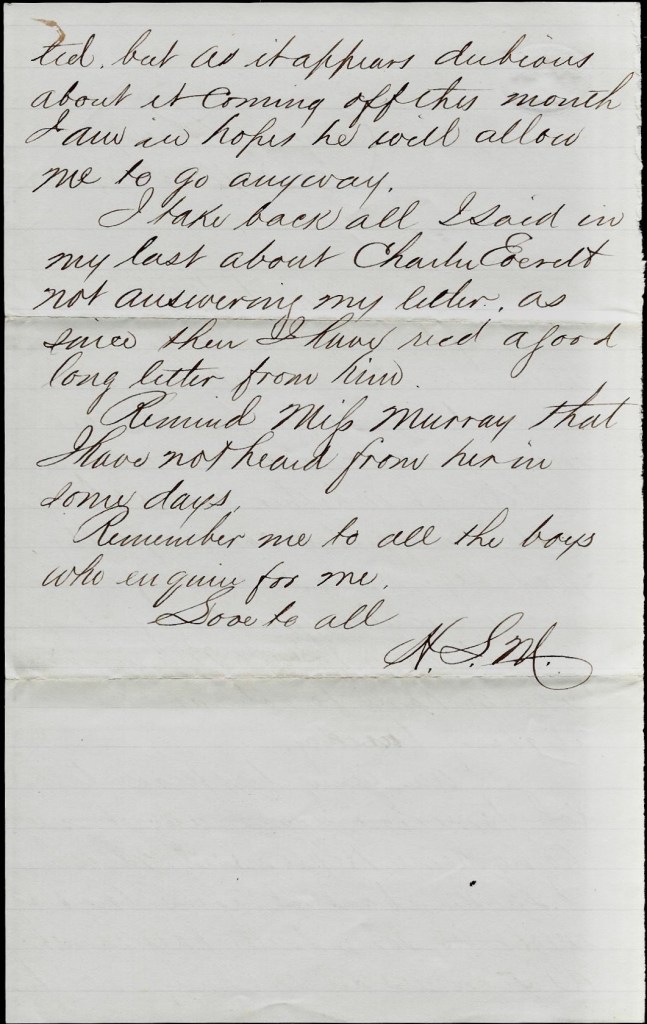 ted. but as it appears dubious
about it coming off this month
I am in hopes he will allow
me to go anyway.
I take back all I said in
my last about Charlie Everett
not answering my letter, as
since then I have recd a good
long letter from him.
Remind Miss Murray that
I have not heard from her in
some days.
Remember me to all the boys
who enquire for me.
Love to all
H. S. M.